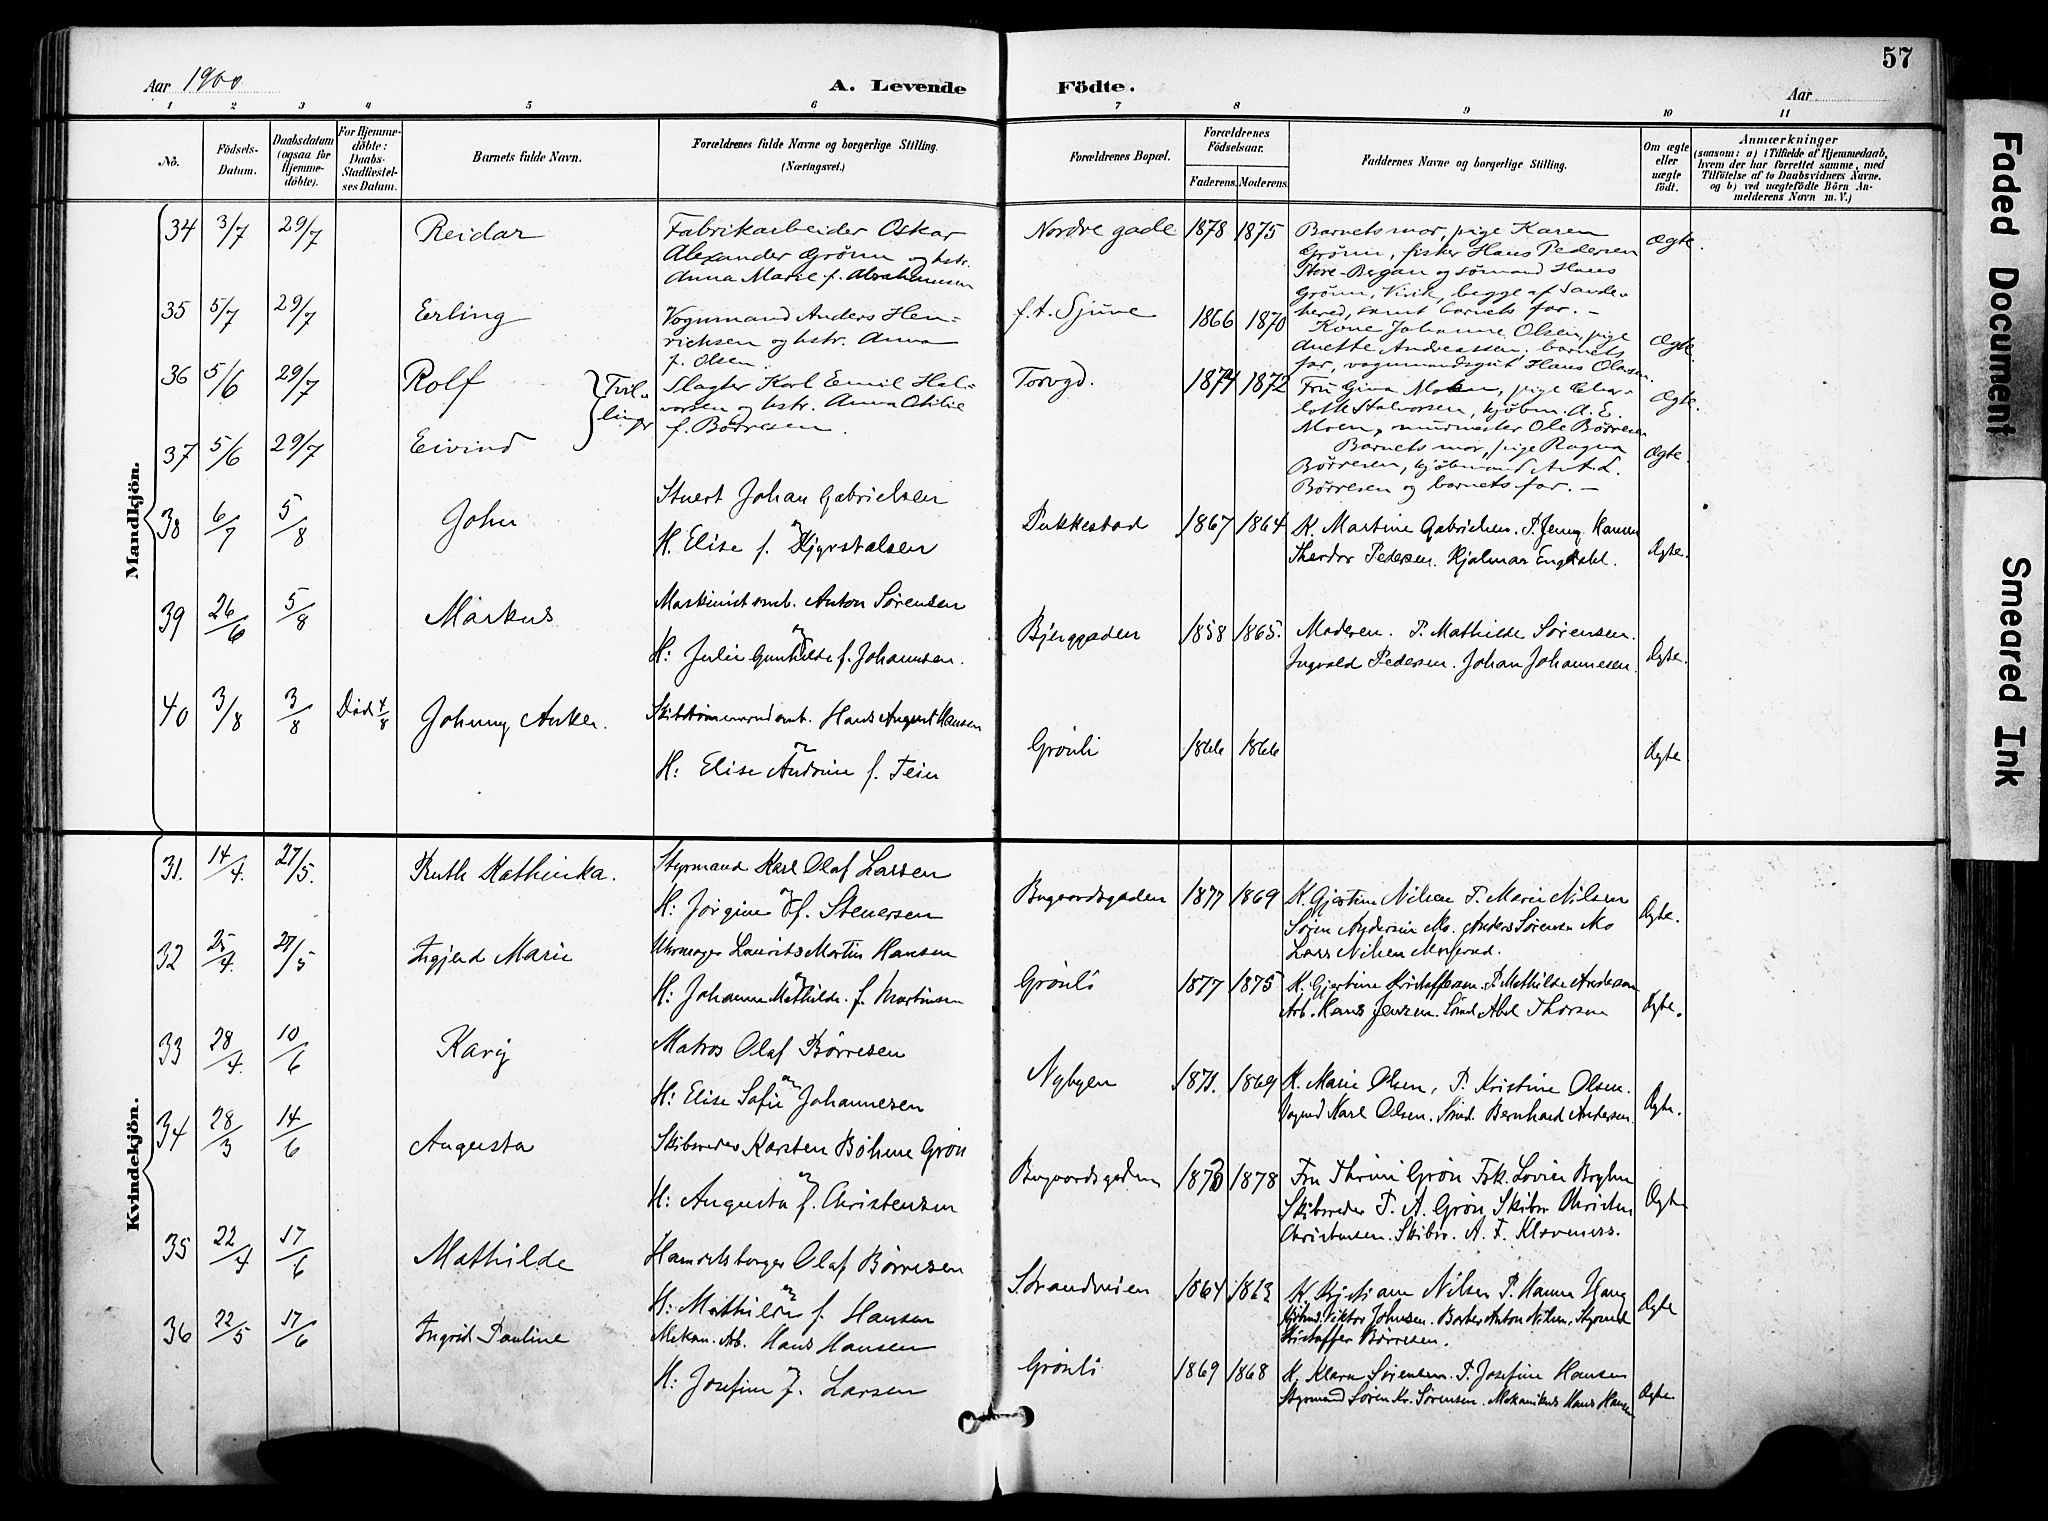 57
Aar 1900
A. Levende Födte.
Aar
1 2 3 4 5 6 7 8 9 10 11
No.
Födsels-Datum.
Daabsdatum (ogsaa for Hjemmedöbte).
For Hjemmedöbte: Daabs-Stadfæstelses Datum.
Barnets fulde Navn.
Forældrenes fulde Navne og borgerlige Stilling.
(Næringsvei.)
Forældrenes Bopæl.
Forældrenes Fødselsaar.
Faderens. Moderens.
Faddernes Navne og borgerlige Stilling.
Om ægte eller uægte födt.
Anmærkninger
(saasom: a) i Tilfælde af Hjemmedaab, hvem der har forrettet samme, med Tilföielse af to Daabsvidners Navne, og b) ved uægtefödte Börn Anmelderens Navn m. V.)
Mandkjön.
34 3/7 29/7 Reidar
Fabrikarbeider Oskar
Alexander Grønn og hstr.
Anna Marie f. Abrahamsen
Nordre gade 1878 1875
Barnets mor, pige Karen
Grønn, fisker Hans Pedersen
Store-Bergan og sømand Hans
Grønn, Virik, begge af Sande-
hered, samt barnets far. –
Ægte.
35 5/7 29/7 Erling
Vognmand Anders Hen-
richsen og hstr. Anna
f. Olsen.
1866 1870
Kone Johanne Olsen, pige
Anette Andreassen, barnets
far, vognmandsgut Hans Olasen.
Ægte.
36 5/6 29/7 Rolf
Tvil-
linger
Slagter Karl Emil Hal-
vorsen og hstr. Anna Otilie
f. Børresen.
Torvgd. 1874 1872
Fru Gina Moen, pige Char-
lotte Halvorsen, kjøbm. A. E.
Moen, murmester Ole Børresen
Ægte.
37 5/6 29/7 Eivind
Barnets mor, pige Ragna
Børresen, kjøbmand Ant. L.
Børresen og barnets far. –
Ægte.
38 6/7 5/8 John
Stuert Johan Gabrielsen
og
H. Elise f.
Pukkestad 1867 1864
K. Martine Gabrielsen. P. Jenny Hansen
Theodor Pedersen. Hjalmar Engdahl.
Ægte.
39 26/6 5/8 Markus
Maskinist smb. Anton Sørensen
og
H: Julie Gunhilde f. Johannsen.
Bjerggaden 1858 1865.
Moderen. P. Mathilde Sørensen.
Ingvald Pedersen. Johan Johannesen
Ægte.
40 3/8 3/8 Död 4/8 Johnny Anker.
Skibstømmermd smb. Hans August Hansen
og
H: Elise Andrine f. Tein
Grönli 1866 1866
Ægte
Kvindekjön.
31. 14/4. 27/5. Ruth Kathinka.
Styrmand Karl Olaf Larsen
og
H: Jørgine f. Stenersen
Bugaardsgaden 1877 1869
K. Gjertine Nilsen P. Marie Nilsen
Sören Andersen Mo. Anders Sörensen Mo
Lars Nilsen
Ægte.
32 25/4. 27/5 Ingjerd Marie
Uhrmager Laurits Martin Hansen
og
H: Johanne Mathilde. f. Martinsen
Grönli 1877 1875
K. Gjertine Kristoffersen. P. Mathilde Andersen
Arb. Hans Jensen. Sömd. Abel Thorsen
Ægte.
33 28/4. 10/6 Karij
Matros Olaf Börresen
og
H: Elise Sofie Johannesen
Nybyen 1871. 1869
K. Marie Olsen, P. Kristine Olsen.
Vognmd Karl Olsen. Sömd. Bernhard Andersen.
Ægte.
34 28/3 14/6 Augusta
Skibsreder Karsten Böhme Grön
og
H: Augusta f. Christensen
Bugaardsgaden 1873 1878
Fru Thrine Grön Frk. Lovise
Skibsreder P. A. Grön, Skibsr Christen
Christensen. Skibsr. A. F. Klaveness.
Ægte
35 22/4 17/6 Mathilde
Olaf Börresen
og
H: Mathilde f. Hansen
Strandveien 1864 1863
K. Kristiane Nilsen P. Hanna Haug
Viktor Johnsen. Barber Anton Nilsen, Styrmd
Kristoffer Börresen.
Ægte
36 22/5 17/6 Ingrid Pauline
Mekan. Arb. Hans Hansen
H: Josefine f. Larsen
Grönli 1869 1868
K. Klara Sörensen. P. Josefine Hansen
Styrmand Sören Kr. Sörensen. Mekanikus Hans Hansen
Ægte
Faded Document
Smeared Ink